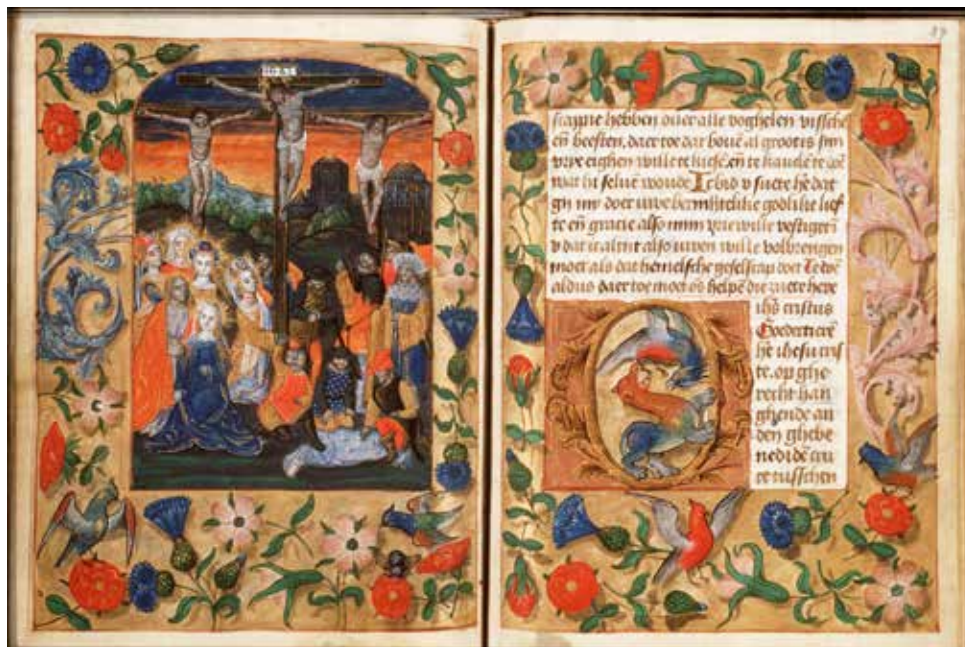 scappie hebben ouer alle voghelen vissche
eñ beesten. daer toe dat bouē al groot is
vrie eighen wille te kiesē. eñ te te doē
wat hi seluē woude Ic bid v suete hē dat
ghi my doer uwe godlike lief
te eñ gracie also vrie wille
v dat ic altijt also uwen wille volbrengen
moet als dat hemelsche geselscap doet
aldus daer toe moet ōs helpē die zuete here
ihūs cristus
Goedertierē
hē ihesu cris
te. op ghe
recht han
ghende an
den ghebe
nedidē cru
ce tusschen